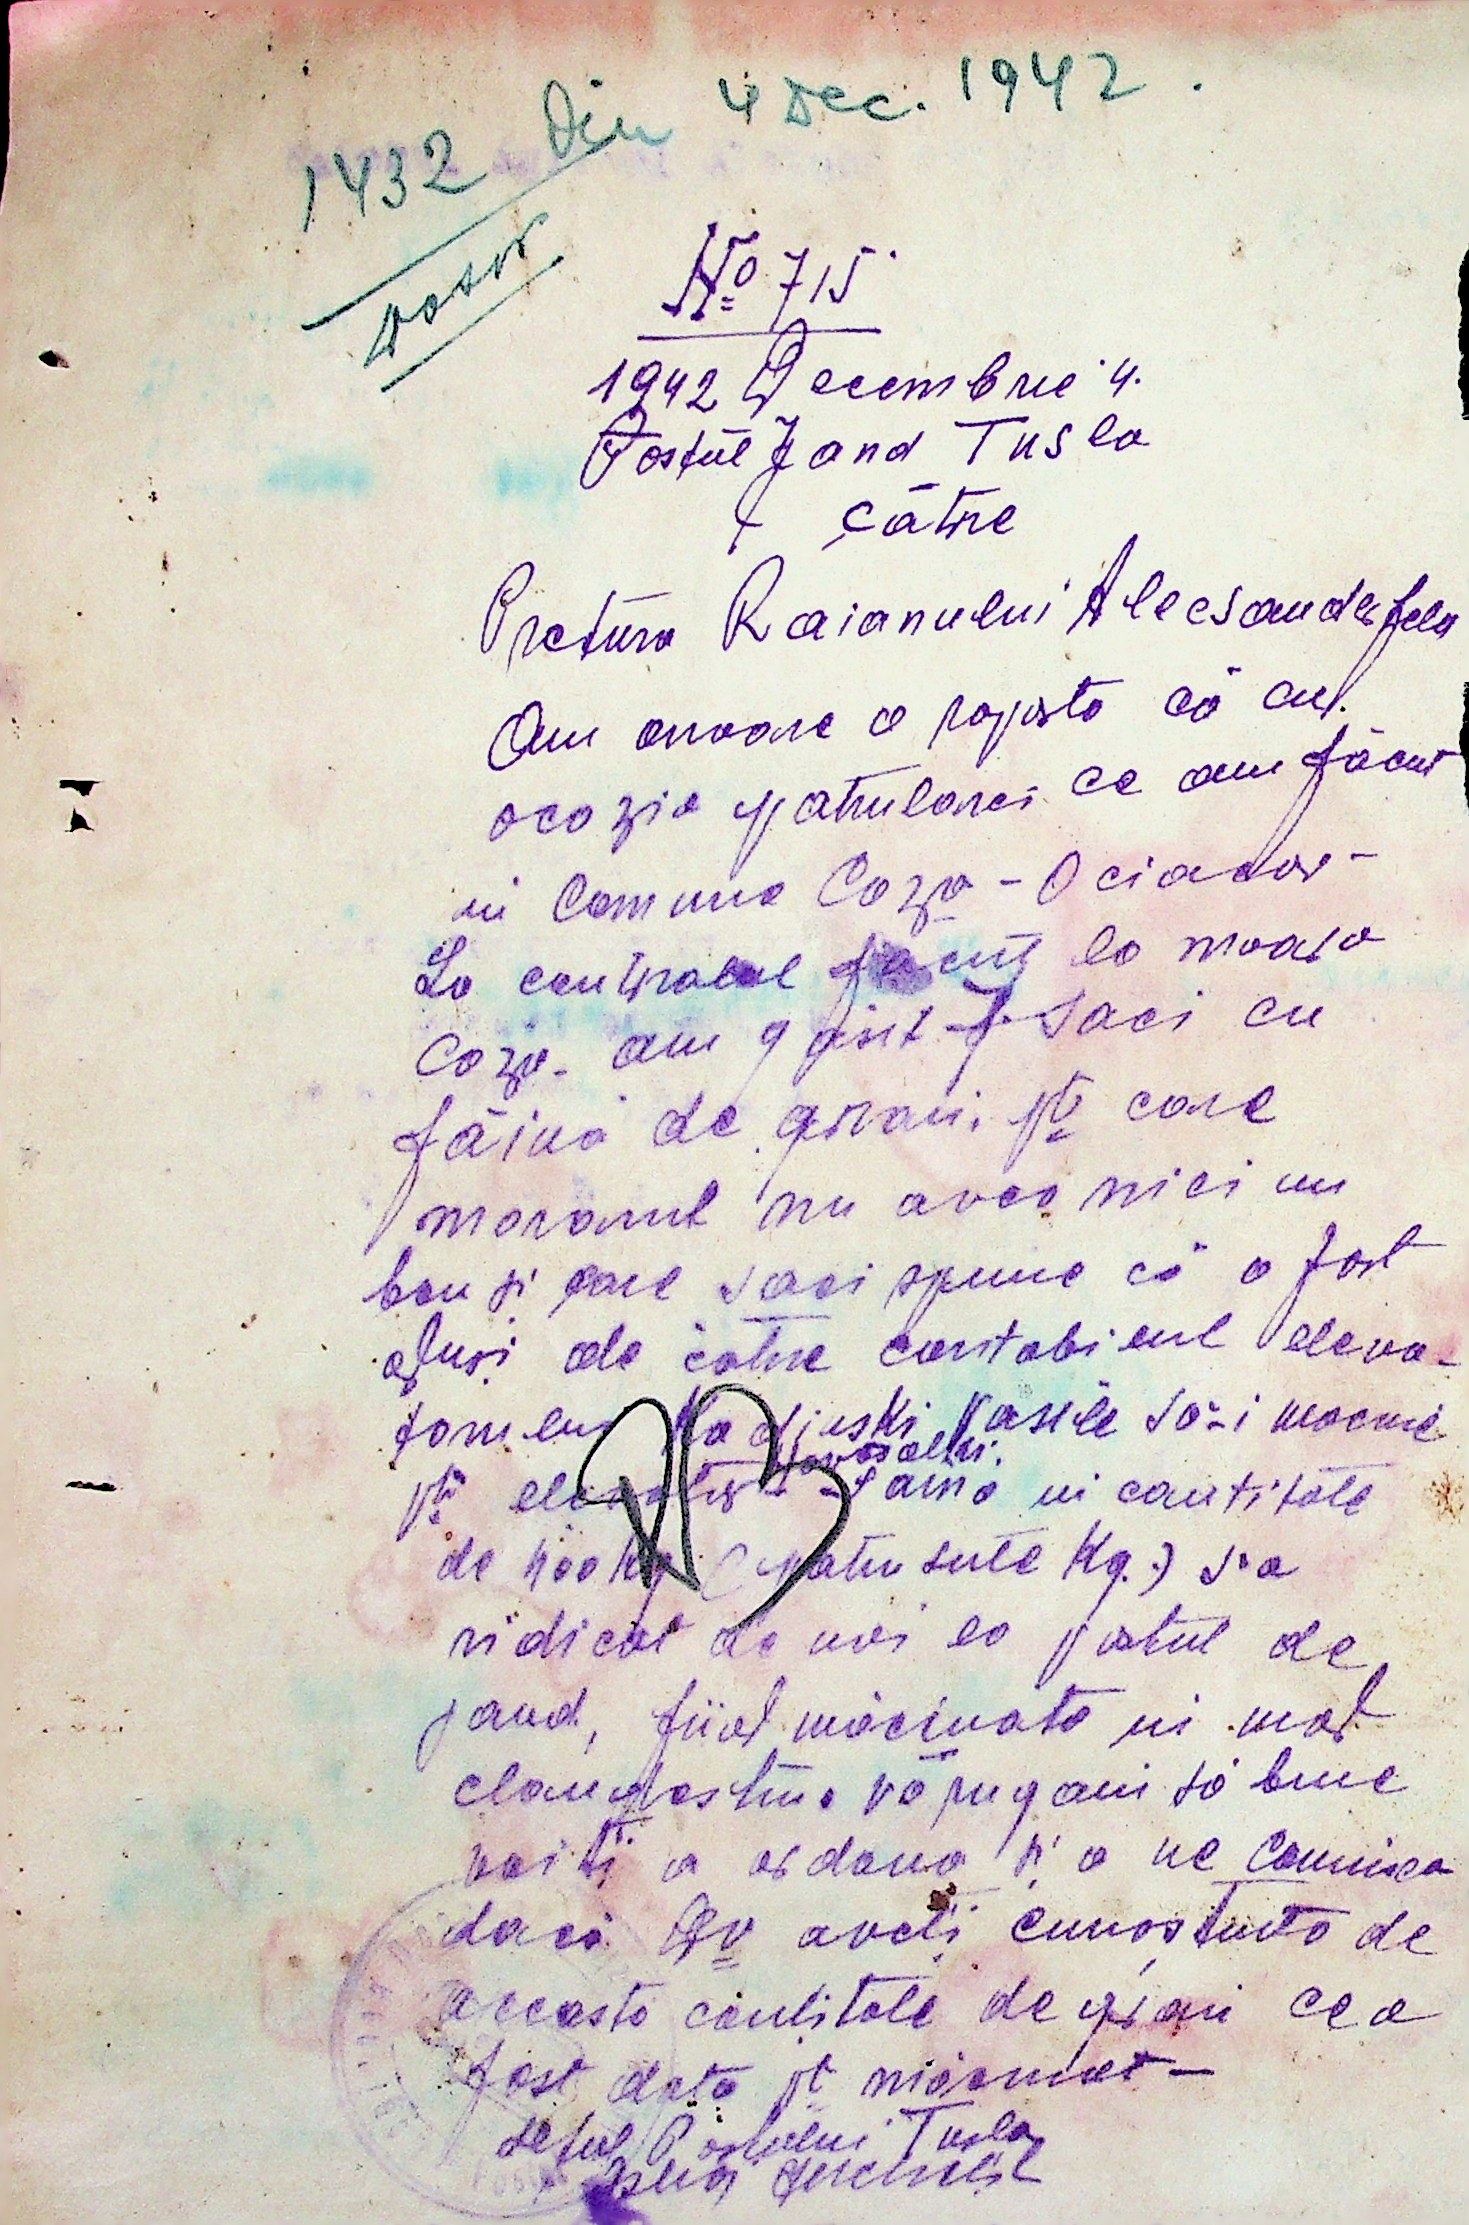 1432 Din 4 Dec. 1942.
Dosar
No 715.
1942 Decembrie 4.
Postul Jand Tusla
către
Pretura Raianului Alecsanderfeld
Am onoare a raporta că cu
ocazia patrularei ce am făcut
in Comuna Coza - Ociacov -
La controlul făcut la moara
Coza - am găsit 7 saci cu
făină de grau. ptr care
morarul nu avea nici un
bon și care saci spune că a fost
duși de către contabilul eleva-
torului Vasile să-i macine
ptr elevator făina in cantitate
de 400 Kg (patru sute Kg.) s'a
ridicat de noi la postul de
jand, fiind măcinata in mod
clandestin. vă rugam să bine
voiți a ordona și a ne comunica
dacă Dv aveți cunoștința de
aceasta cantitate de grau ce a
fost data pt măcinat -
Seful Postului Tusla